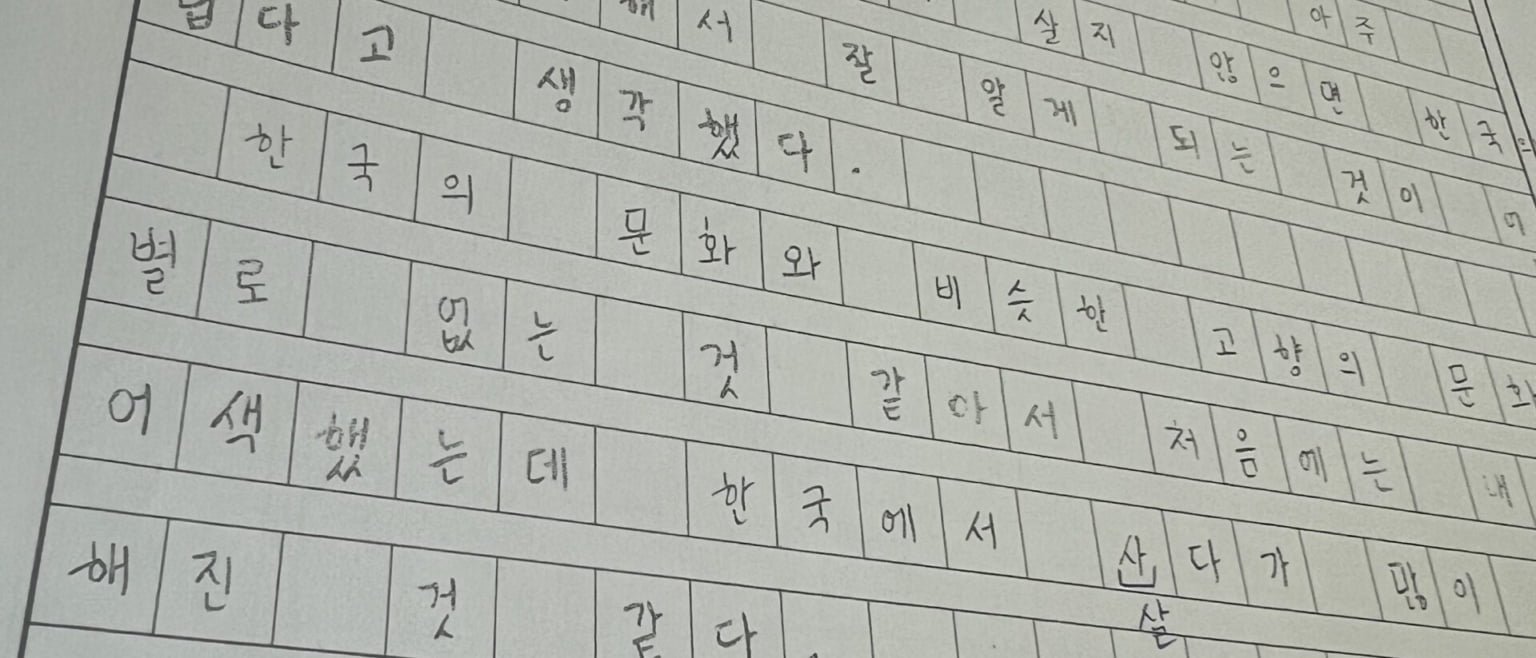 아주
살지 않으면 한국의
해서 잘 알게 되는 것이
다고 생각했다.
한국의 문화와 비슷한 고향의 문화
별로 없는 것 같아서 처음에는 내
어색했는데 한국에서 산다가 많이
살
해진 것 같다.